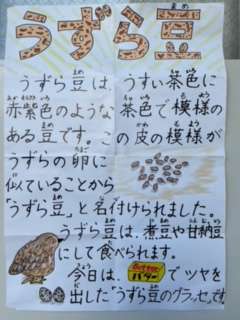 うずら豆
うずら豆は、うすい茶色に
赤紫色のような茶色で模様の
ある豆です。この皮の模様が
うずらの卵に
似ていることから
「うずら豆」と名付けられました。
うずら豆は、煮豆や甘納豆
にして食べられます。
今日は、バターでツヤを
出した「うずら豆のグラッセ」です